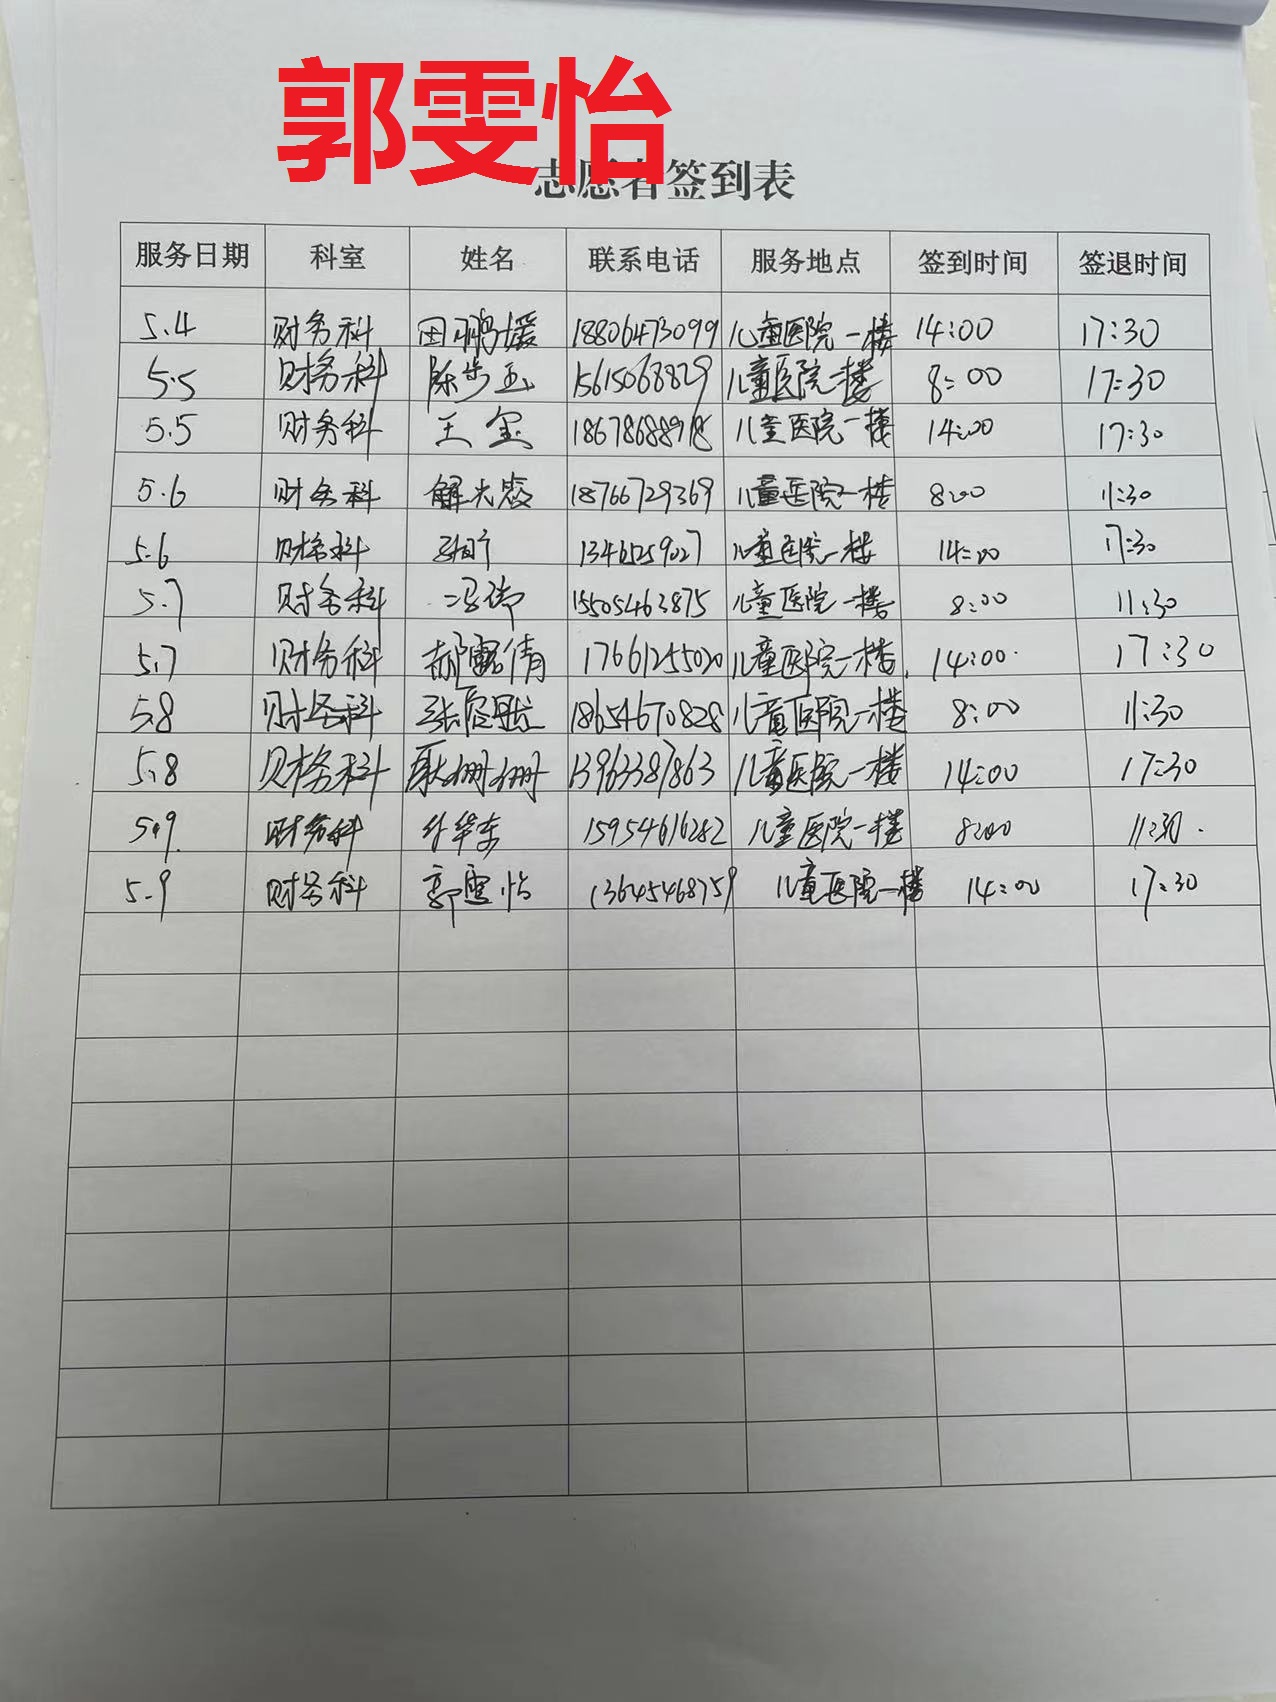 郭雯怡
志愿者签到表
服务日期 科室 姓名 联系电话 服务地点 签到时间 签退时间
5.4 财务科 田鹏媛 18806473099 儿童医院一楼 14:00 17:30
5.5 财务科 陈步玉 15615068829 儿童医院一楼 8:00 17:30
5.5 财务科 王金 18678688918 儿童医院一楼 14:00 17:30
5.6 财务科 18766729369 儿童医院一楼 8:00 11:30
5.6 财务科 13465259027 儿童医院一楼 14:00 17:30
5.7 财务科 冯伟 15505463875 儿童医院一楼 8:00 11:30
5.7 财务科 郝露倩 17661255020 儿童医院一楼 14:00 17:30
5.8 财务科 18654670828 儿童医院一楼 8:00 11:30
5.8 财务科 耿姗姗 13963387863 儿童医院一楼 14:00 17:30
5.9 财务科 15954616282 儿童医院一楼 8:00 11:30
5.9 财务科 郭雯怡 13645468759 儿童医院一楼 14:00 17:30